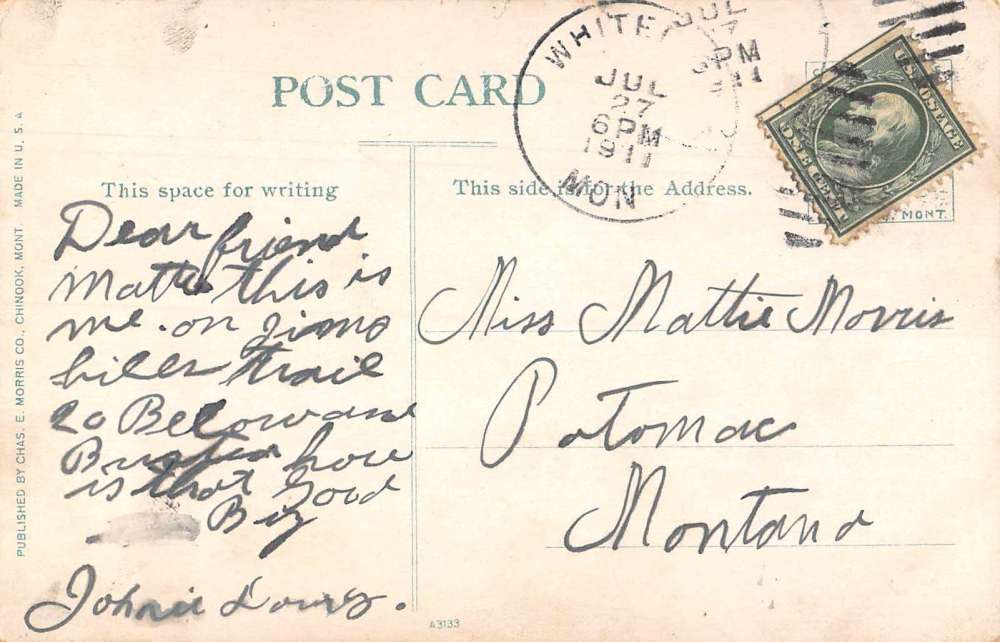 POST CARD
This space for writing
This side is for the Address.
WHITE
JUL
27
6 PM
1911
MON
JUL
7
PM
11
U.S. POSTAGE
ONE CENT
MONT.
PUBLISHED BY CHAS. E. MORRIS CO., CHINOOK, MONT. MADE IN U. S. A
Dear friend
Mattie this is
me. on Jims
hiller trail
20 Below and
Busted how
is that good
By
Johnie
Miss Mattie Morris
Potomac
Montana
A3133